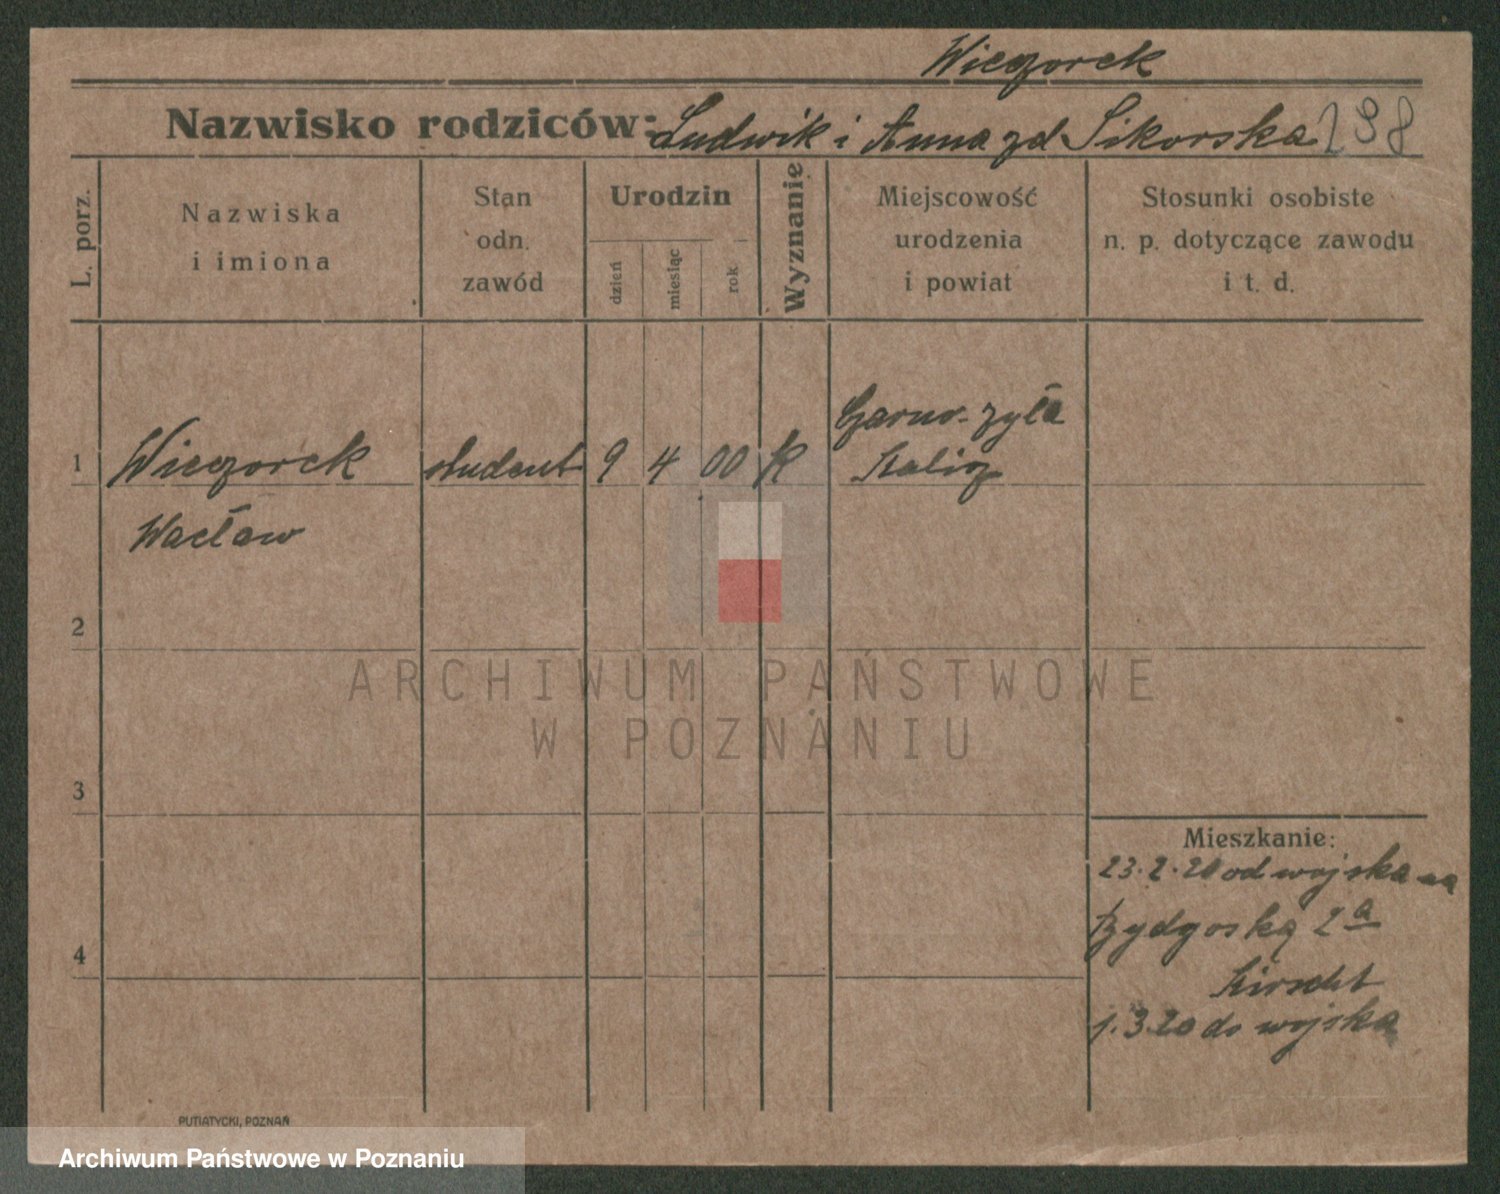 Wieczorek
Nazwisko rodziców: Ludwik i Anna zd Sikorska 298
L. porz.
Nazwiska
i imiona
Stan
odn.
zawód
Urodzin
dzień
miesiąc
rok
Wyznanie
Miejscowość
urodzenia
i powiat
Stosunki osobiste
n. p. dotyczące zawodu
i t. d.
1 Wieczorek student 9 4 00 k Czarno-żyła
Kalisz
Wacław
2
3
4
Mieszkanie:
23.2.20 od wojska na
Bydgoską 2a
Kirscht
1.3.20 do wojska
PUTIATYCKI, POZNAŃ
ARCHIWUM PAŃSTWOWE
W POZNANIU
Archiwum Państwowe w Poznaniu